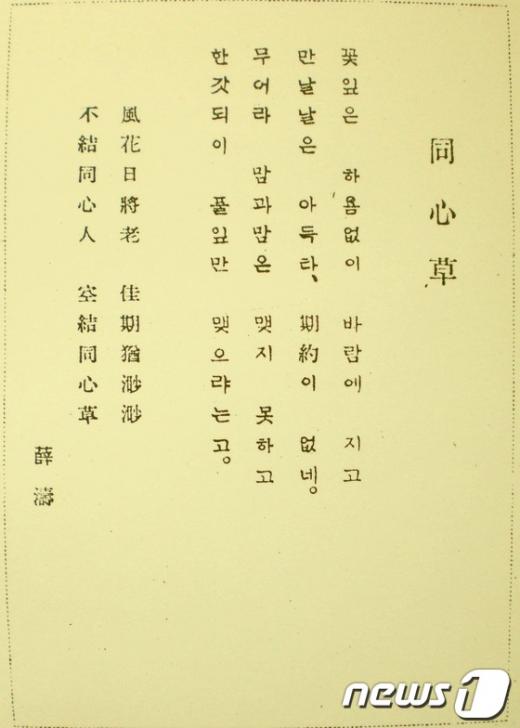 同心草
꽃잎은 하욤없이 바람에 지고
만날날은 아득타、 期約이 없네。
무어라 맘과맘은 맺지 못하고
한갓되이 풀잎만 맺으랴는고。
風花日將老 佳期猶渺渺
不結同心人 空結同心草
薛濤
news1